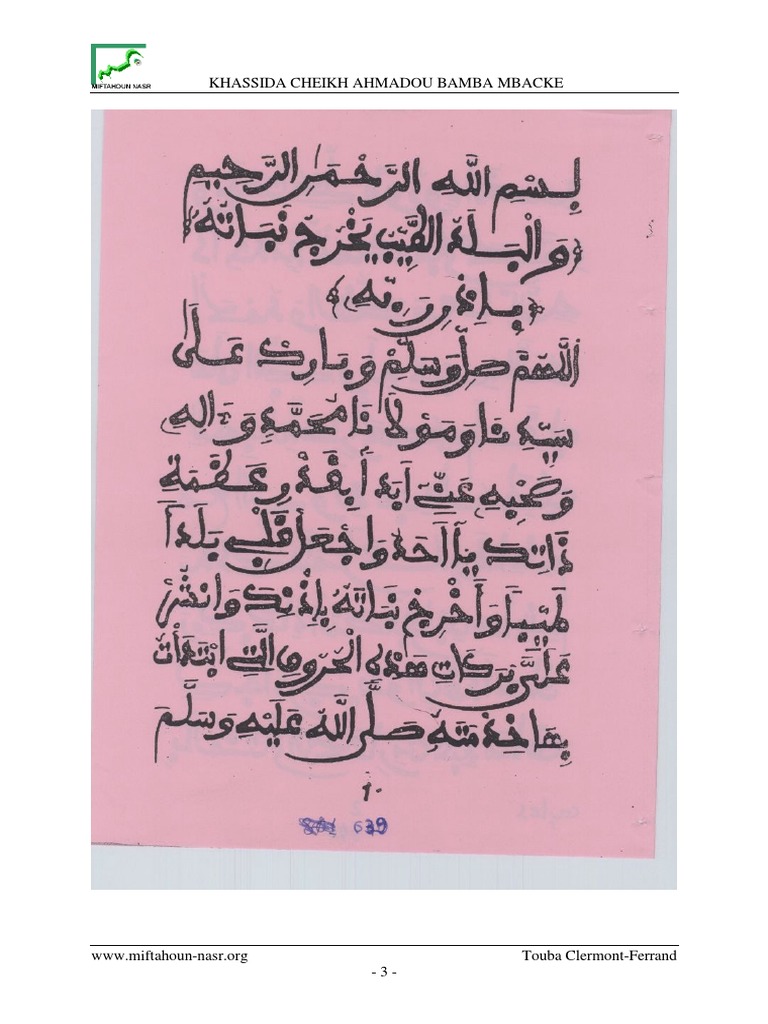 MIFTAHOUN NASR
KHASSIDA CHEIKH AHMADOU BAMBA MBACKE
بِسْمِ اللَّهِ الرَّحْمَنِ الرَّحِيمِ
﴿وَالْبَلَدُ الطَّيِّبُ يَخْرُجُ نَبَاتُهُ
بِإِذْنِ رَبِّهِ﴾
اللَّهُمَّ صَلِّ وَسَلِّمْ وَبَارِكْ عَلَى
سَيِّدِنَا وَمَوْلَانَا مُحَمَّدٍ وَآلِهِ
وَصَحْبِهِ عَنِّي أَبَدًا بِقَدْرِ عَظَمَةِ
ذَاتِكَ يَا أَحَدُ وَاجْعَلْ قَلْبِي بَلَدًا
طَيِّبًا وَأَخْرِجْ نَبَاتَهُ بِإِذْنِكَ وَانْشُرْ
عَلَيَّ بَرَكَاتِ هَذِهِ الْحُرُوفِ الَّتِي ابْتَدَأْتُ
بِهَا خِدْمَتَهُ صَلَّى اللَّهُ عَلَيْهِ وَسَلَّمَ
639
www.miftahoun-nasr.org Touba Clermont-Ferrand
- 3 -